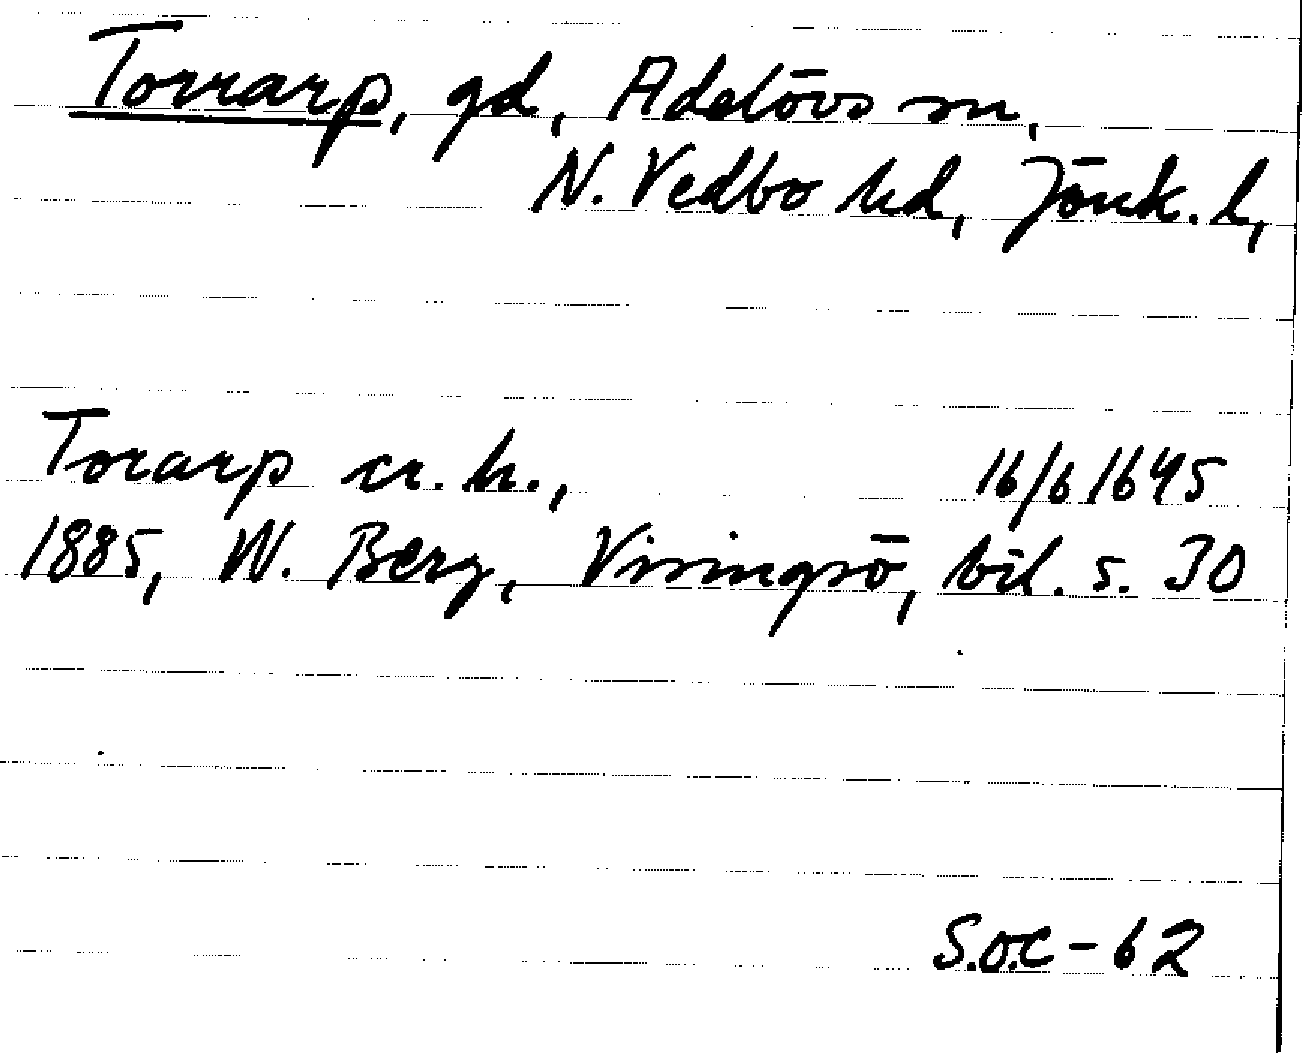 Torrarp, gd, Adelövs sn,
N. Vedbo hd, Jönk. l,
Torarp cr. h., 16/6 1645
1885, W. Berg, Visingsö, bil. s. 30
S.O.C - 62